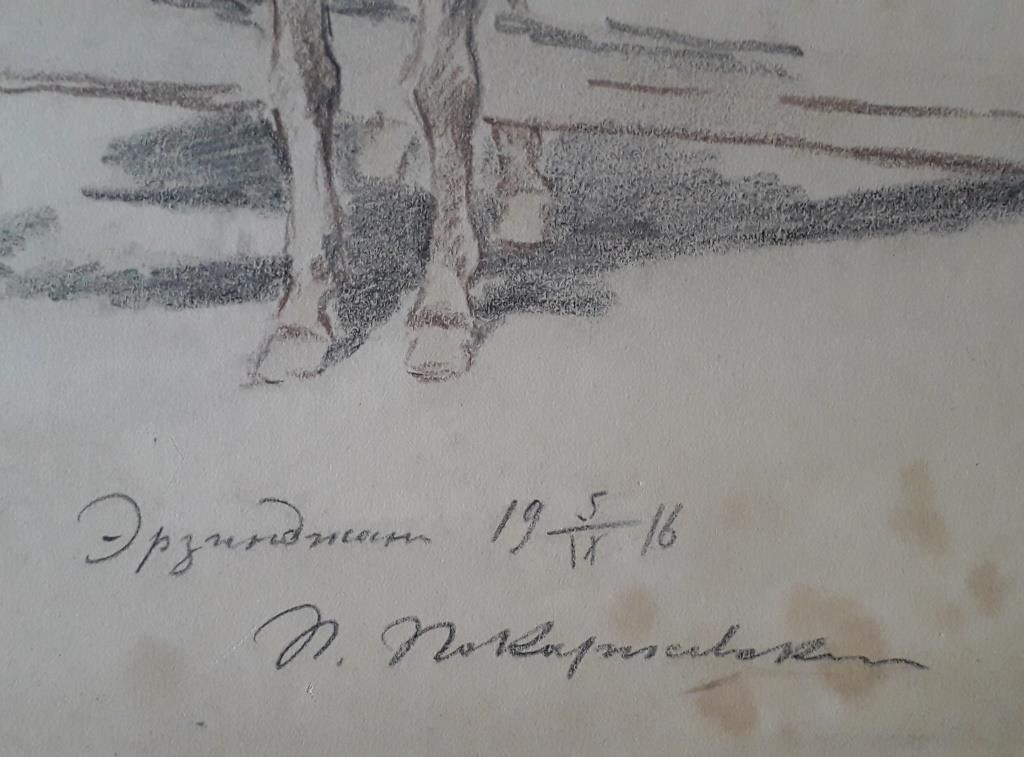 Эрзинджан 19 5/IX 16
П. Покаржевский